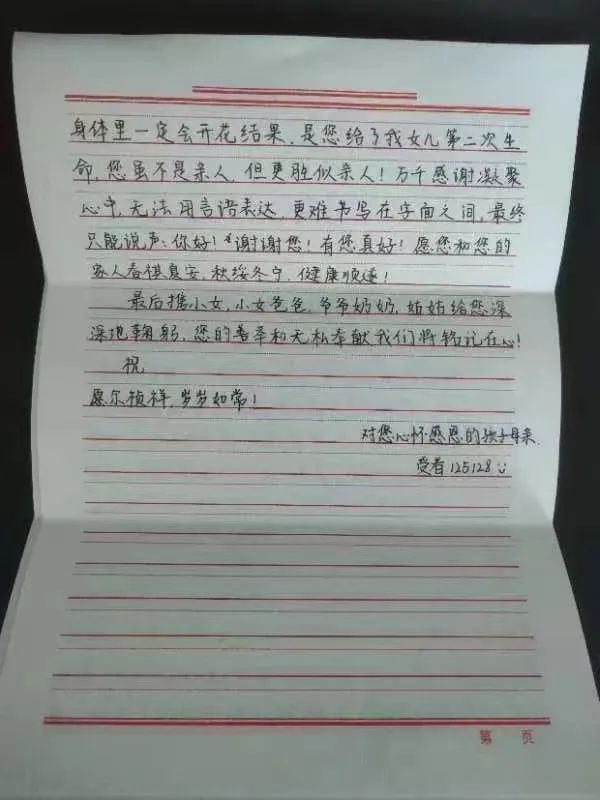 身体里一定会开花结果，是您给了我女儿第二次生
命，您虽不是亲人，但更胜似亲人！万千感谢凝聚
心中，无法用言语表达，更难书写在字面之间，最终
只能说声：你好！谢谢您！有您真好！愿您和您的
家人春祺夏安，秋绥冬宁，健康顺遂！
最后携小女，小女爸爸，爷爷奶奶，姑姑给您深
深地鞠躬，您的善举和无私奉献我们将铭记在心！
祝
愿尔祯祥，岁岁如常！
对您心怀感恩的孩子母亲.
受者125128
第 页